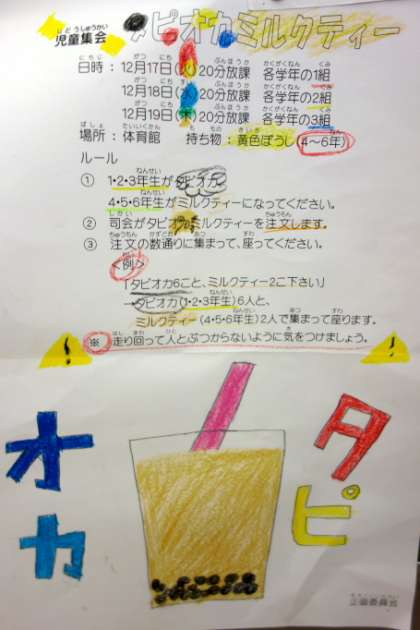 児童集会 タピオカミルクティー
日時：12月17日(火)20分放課 各学年の1組
12月18日(水)20分放課 各学年の2組
12月19日(木)20分放課 各学年の3組
場所：体育館 持ち物：黄色ぼうし(4～6年)
ルール
① 1・2・3年生がタピオカ、
4・5・6年生がミルクティーになってください。
② 司会がタピオカミルクティーを注文します。
③ 注文の数通りに集まって、座ってください。
<例>
「タピオカ6こと、ミルクティー2こ下さい」
→タピオカ(1・2・3年生)6人と、
ミルクティー(4・5・6年生)2人で集まって座ります。
※ 走り回って人とぶつからないように気をつけましょう。
タピ
オカ
企画委員会